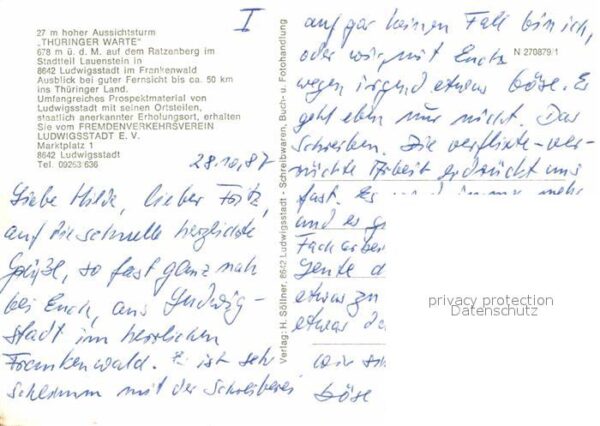 I
27 m hoher Aussichtsturm
„THÜRINGER WARTE"
678 m ü. d. M. auf dem Ratzenberg im
Stadtteil Lauenstein in
8642 Ludwigsstadt im Frankenwald
Ausblick bei guter Fernsicht bis ca. 50 km
ins Thüringer Land.
Umfangreiches Prospektmaterial von
Ludwigsstadt mit seinen Ortsteilen,
staatlich anerkannter Erholungsort, erhalten
Sie vom FREMDENVERKEHRSVEREIN
LUDWIGSSTADT E. V.
Marktplatz 1
8642 Ludwigsstadt
Tel. 09263 636
28.10.87
Liebe Hilde, lieber Fritz,
auf die schnelle herzlichste
Grüße, so fast ganz nah
bei Euch, aus Ludwig-
stadt im herrlichen
Frankenwald. Es ist sehr
schlimm mit der Schreiberei
Verlag: H. Söllner, 8642 Ludwigsstadt - Schreibwaren, Buch- u. Fotohandlung
N 270879/1
auf gar keinen Fall bin ich,
oder wir mit Euch
wegen irgend etwas böse. Es
geht eben nur nicht. Das
Schreiben. Die verflixte-ver-
rückte Arbeit erdrückt uns
fast. Es wird immer mehr
und es g
Facharbei
Leute d
etwas zu
etwas da
wir sin
böse
privacy protection
Datenschutz